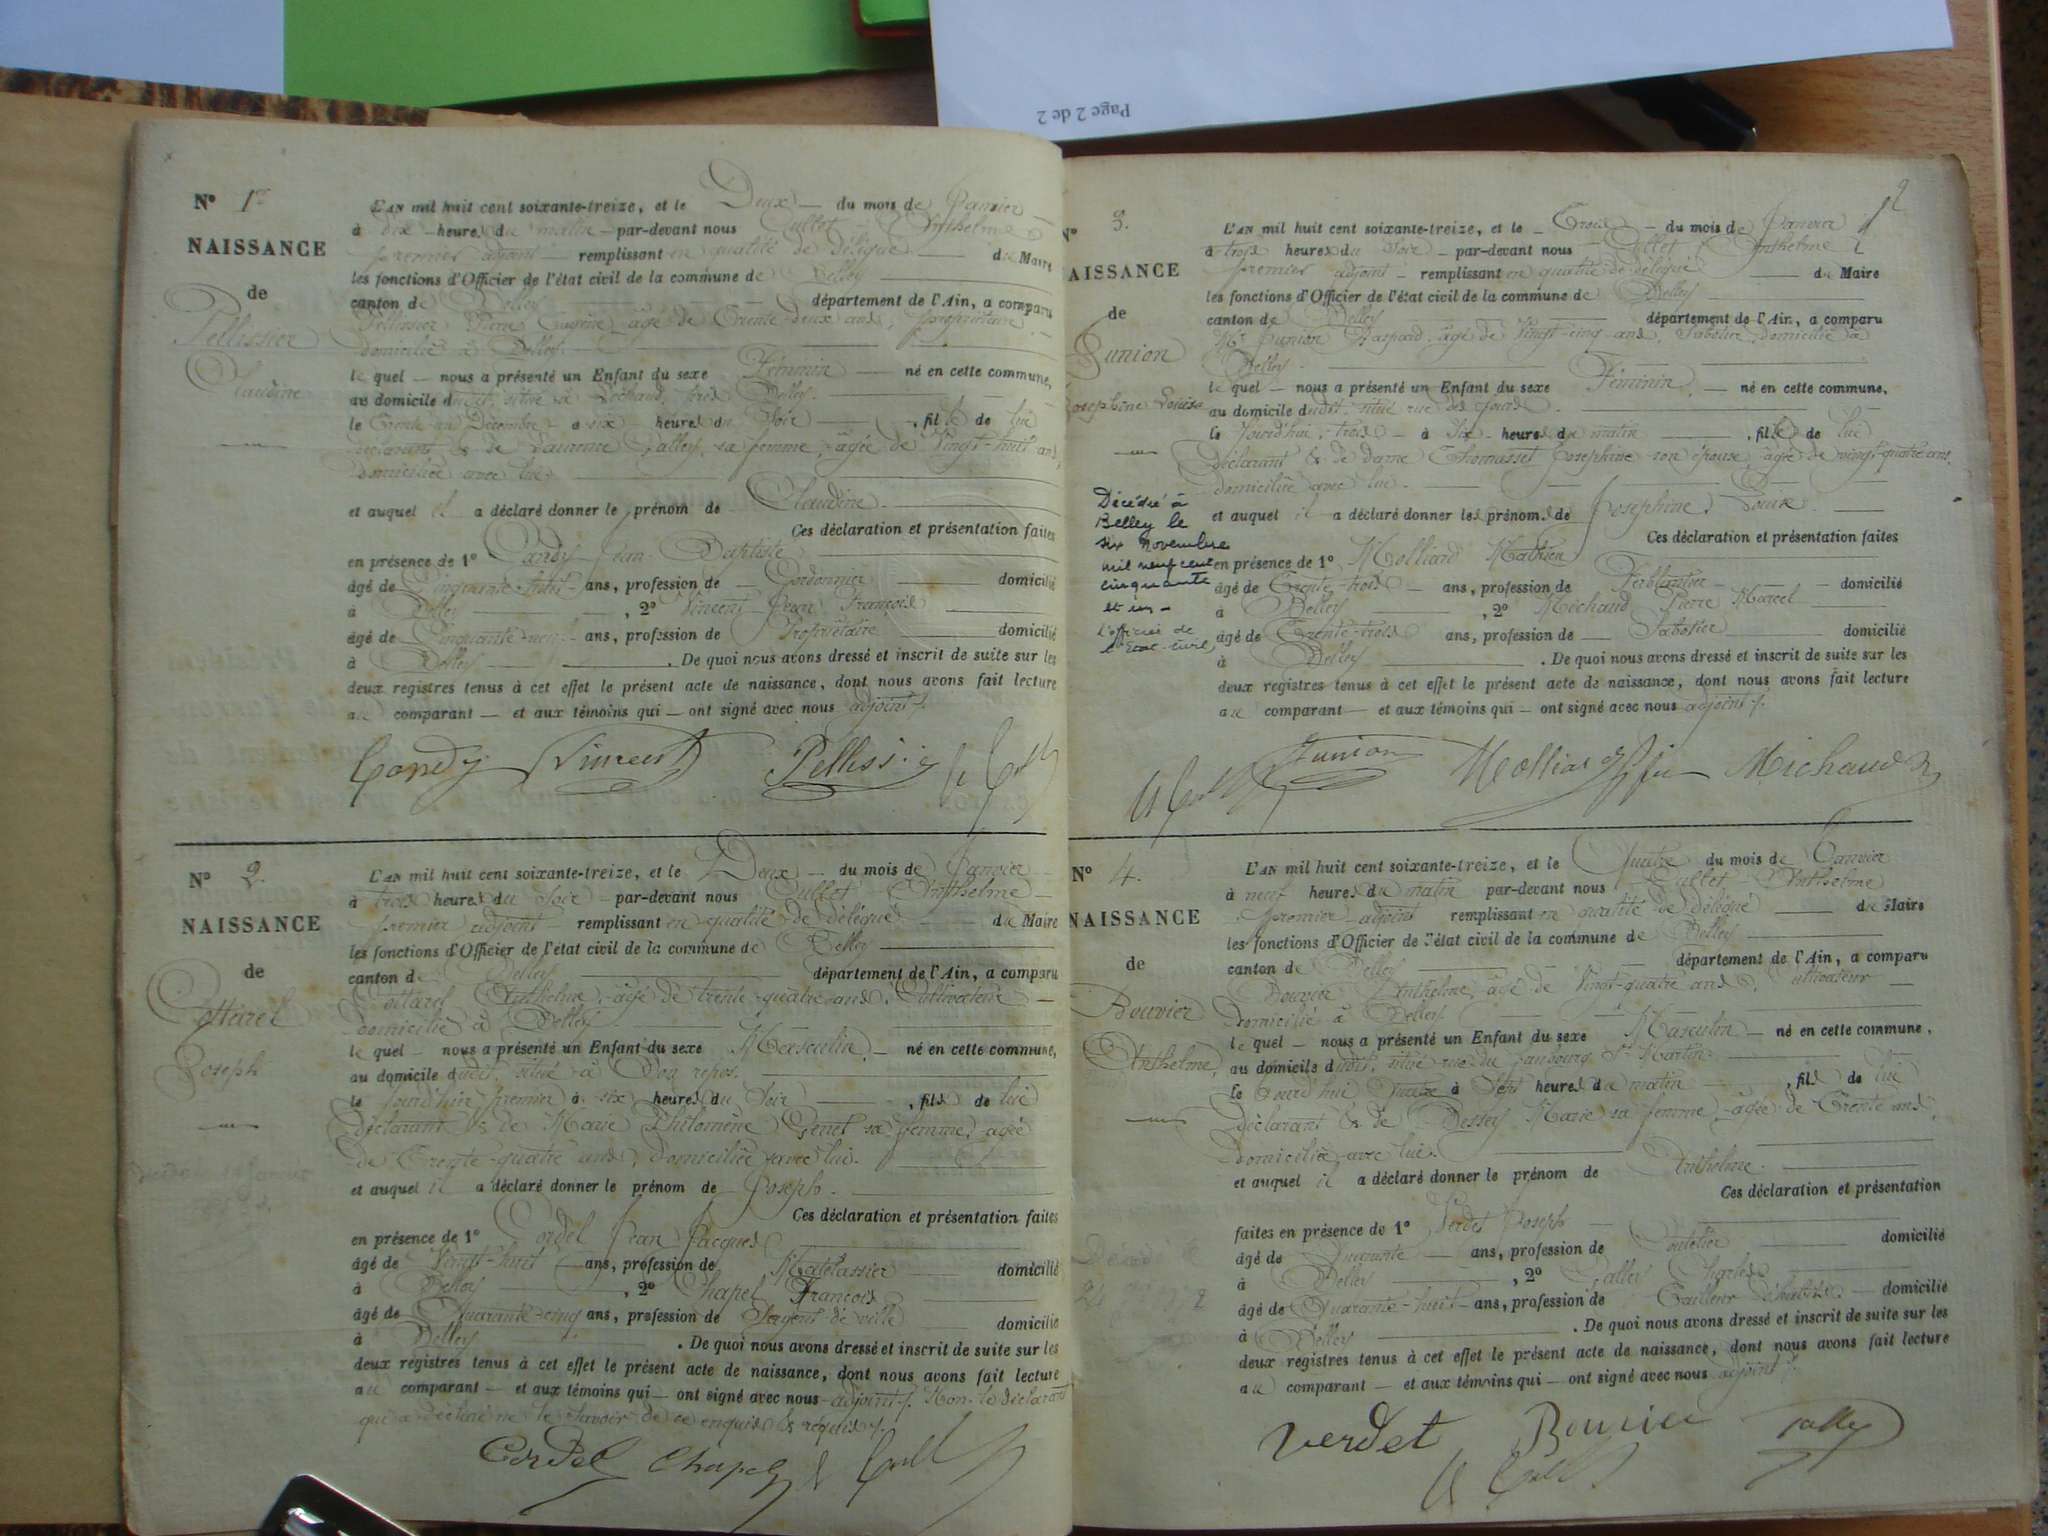 Page 2 de 2
Nº 1er
NAISSANCE
de
Pellissier
Claudine
L'AN mil huit cent soixante-treize, et le Deux du mois de Janvier
à dix heures du matin par-devant nous Cullet Anthelme
premier adjoint remplissant en qualité de délégué du Maire
les fonctions d'Officier de l'état civil de la commune de Belley
canton de Belley département de l'Ain, a comparu
Pellissier Pierre Eugène, âgé de Trente-deux ans, propriétaire
domicilié à Belley.
le quel nous a présenté un Enfant du sexe Féminin né en cette commune,
au domicile dudit, situé à près Belley
le Trente un Décembre à six heures du Soir, fille de lui
déclarant & de sa femme, âgée de Vingt-huit ans,
domiciliée avec lui.
et auquel il a déclaré donner le prénom de Claudine.
Ces déclaration et présentation faites
en présence de 1º Candy Jean-Baptiste
âgé de ans, profession de Cordonnier domicilié
à Belley, 2º Vincent Jean François
âgé de Cinquante-neuf ans, profession de Propriétaire domicilié
à Belley. De quoi nous avons dressé et inscrit de suite sur les
deux registres tenus à cet effet le présent acte de naissance, dont nous avons fait lecture
au comparant et aux témoins qui ont signé avec nous adjoint.
Candy Vincent Pellissier
Nº 2.
NAISSANCE
de
Cottarel
Joseph
L'AN mil huit cent soixante-treize, et le Deux du mois de Janvier
à trois heures du Soir par-devant nous Cullet Anthelme
premier adjoint remplissant en qualité de délégué du Maire
les fonctions d'Officier de l'état civil de la commune de Belley
canton de Belley département de l'Ain, a comparu
Cottarel Anthelme, âgé de trente-quatre ans, Cultivateur
domicilié à Belley.
le quel nous a présenté un Enfant du sexe Masculin né en cette commune,
au domicile dudit, situé à Bon repos.
le jourd'hier premier à six heures du Soir, fils de lui
déclarant & de Marie Philomène Genet sa femme, âgée
de Trente-quatre ans, domiciliée avec lui.
et auquel il a déclaré donner le prénom de Joseph.
Ces déclaration et présentation faites
en présence de 1º Cordel Jean Jacques
âgé de Vingt-huit ans, profession de Matelassier domicilié
à Belley, 2º Chapel François
âgé de Quarante-cinq ans, profession de Sergent de ville domicilié
à Belley. De quoi nous avons dressé et inscrit de suite sur les
deux registres tenus à cet effet le présent acte de naissance, dont nous avons fait lecture
au comparant et aux témoins qui ont signé avec nous adjoint. Non le déclarant
qui a déclaré ne le savoir de ce enquis & requis.
Cordel Chapel
2
Nº 3.
NAISSANCE
de
Junion
Josephine Louise
Décédée à
Belley le
six Novembre
mil neuf cent
cinquante
et un
L'officier de
l'Etat-civil,
L'AN mil huit cent soixante-treize, et le Trois du mois de Janvier
à trois heures du Soir par-devant nous Cullet Anthelme
premier adjoint remplissant en qualité de délégué du Maire
les fonctions d'Officier de l'état civil de la commune de Belley
canton de Belley département de l'Ain, a comparu
Mr Junion Gaspard, âgé de Vingt-cinq ans, Sabotier, domicilié à
Belley.
le quel nous a présenté un Enfant du sexe Féminin, né en cette commune,
au domicile dudit, situé rue des
le jourd'hui, trois à six heures du matin, fille de lui
déclarant & de dame Thomasset Josephine son épouse, âgée de vingt-quatre ans,
domiciliée avec lui.
et auquel il a déclaré donner les prénoms de Josephine Louise
Ces déclaration et présentation faites
en présence de 1º Molliard Mathieu
âgé de Trente-trois ans, profession de Ferblantier domicilié
à Belley, 2º Michaud Pierre Marcel
âgé de Trente-trois ans, profession de Sabotier domicilié
à Belley. De quoi nous avons dressé et inscrit de suite sur les
deux registres tenus à cet effet le présent acte de naissance, dont nous avons fait lecture
au comparant et aux témoins qui ont signé avec nous adjoint.
Junion Molliard Michaud
Nº 4.
NAISSANCE
de
Bouvier
Anthelme,
L'AN mil huit cent soixante-treize, et le Quatre du mois de Janvier
à neuf heures du matin par-devant nous Cullet Anthelme
premier adjoint remplissant en qualité de délégué du Maire
les fonctions d'Officier de l'état civil de la commune de Belley
canton de Belley département de l'Ain, a comparu
Bouvier Anthelme, âgé de Vingt-quatre ans, Cultivateur
domicilié à Belley.
le quel nous a présenté un Enfant du sexe Masculin né en cette commune,
au domicile dudit, situé rue du faubourg St Martin
le jourd'hui quatre à Sept heures du matin, fils de lui
déclarant & de Bessey Marie sa femme, âgée de Trente ans,
domiciliée avec lui.
et auquel il a déclaré donner le prénom de Anthelme.
Ces déclaration et présentation
faites en présence de 1º Verdet Joseph
âgé de Quarante ans, profession de Coutelier domicilié
à Belley, 2º Galley Charles
âgé de Quarante-huit ans, profession de Tailleur d'habits domicilié
à Belley. De quoi nous avons dressé et inscrit de suite sur les
deux registres tenus à cet effet le présent acte de naissance, dont nous avons fait lecture
au comparant et aux témoins qui ont signé avec nous adjoint.
Verdet Bouvier Galley